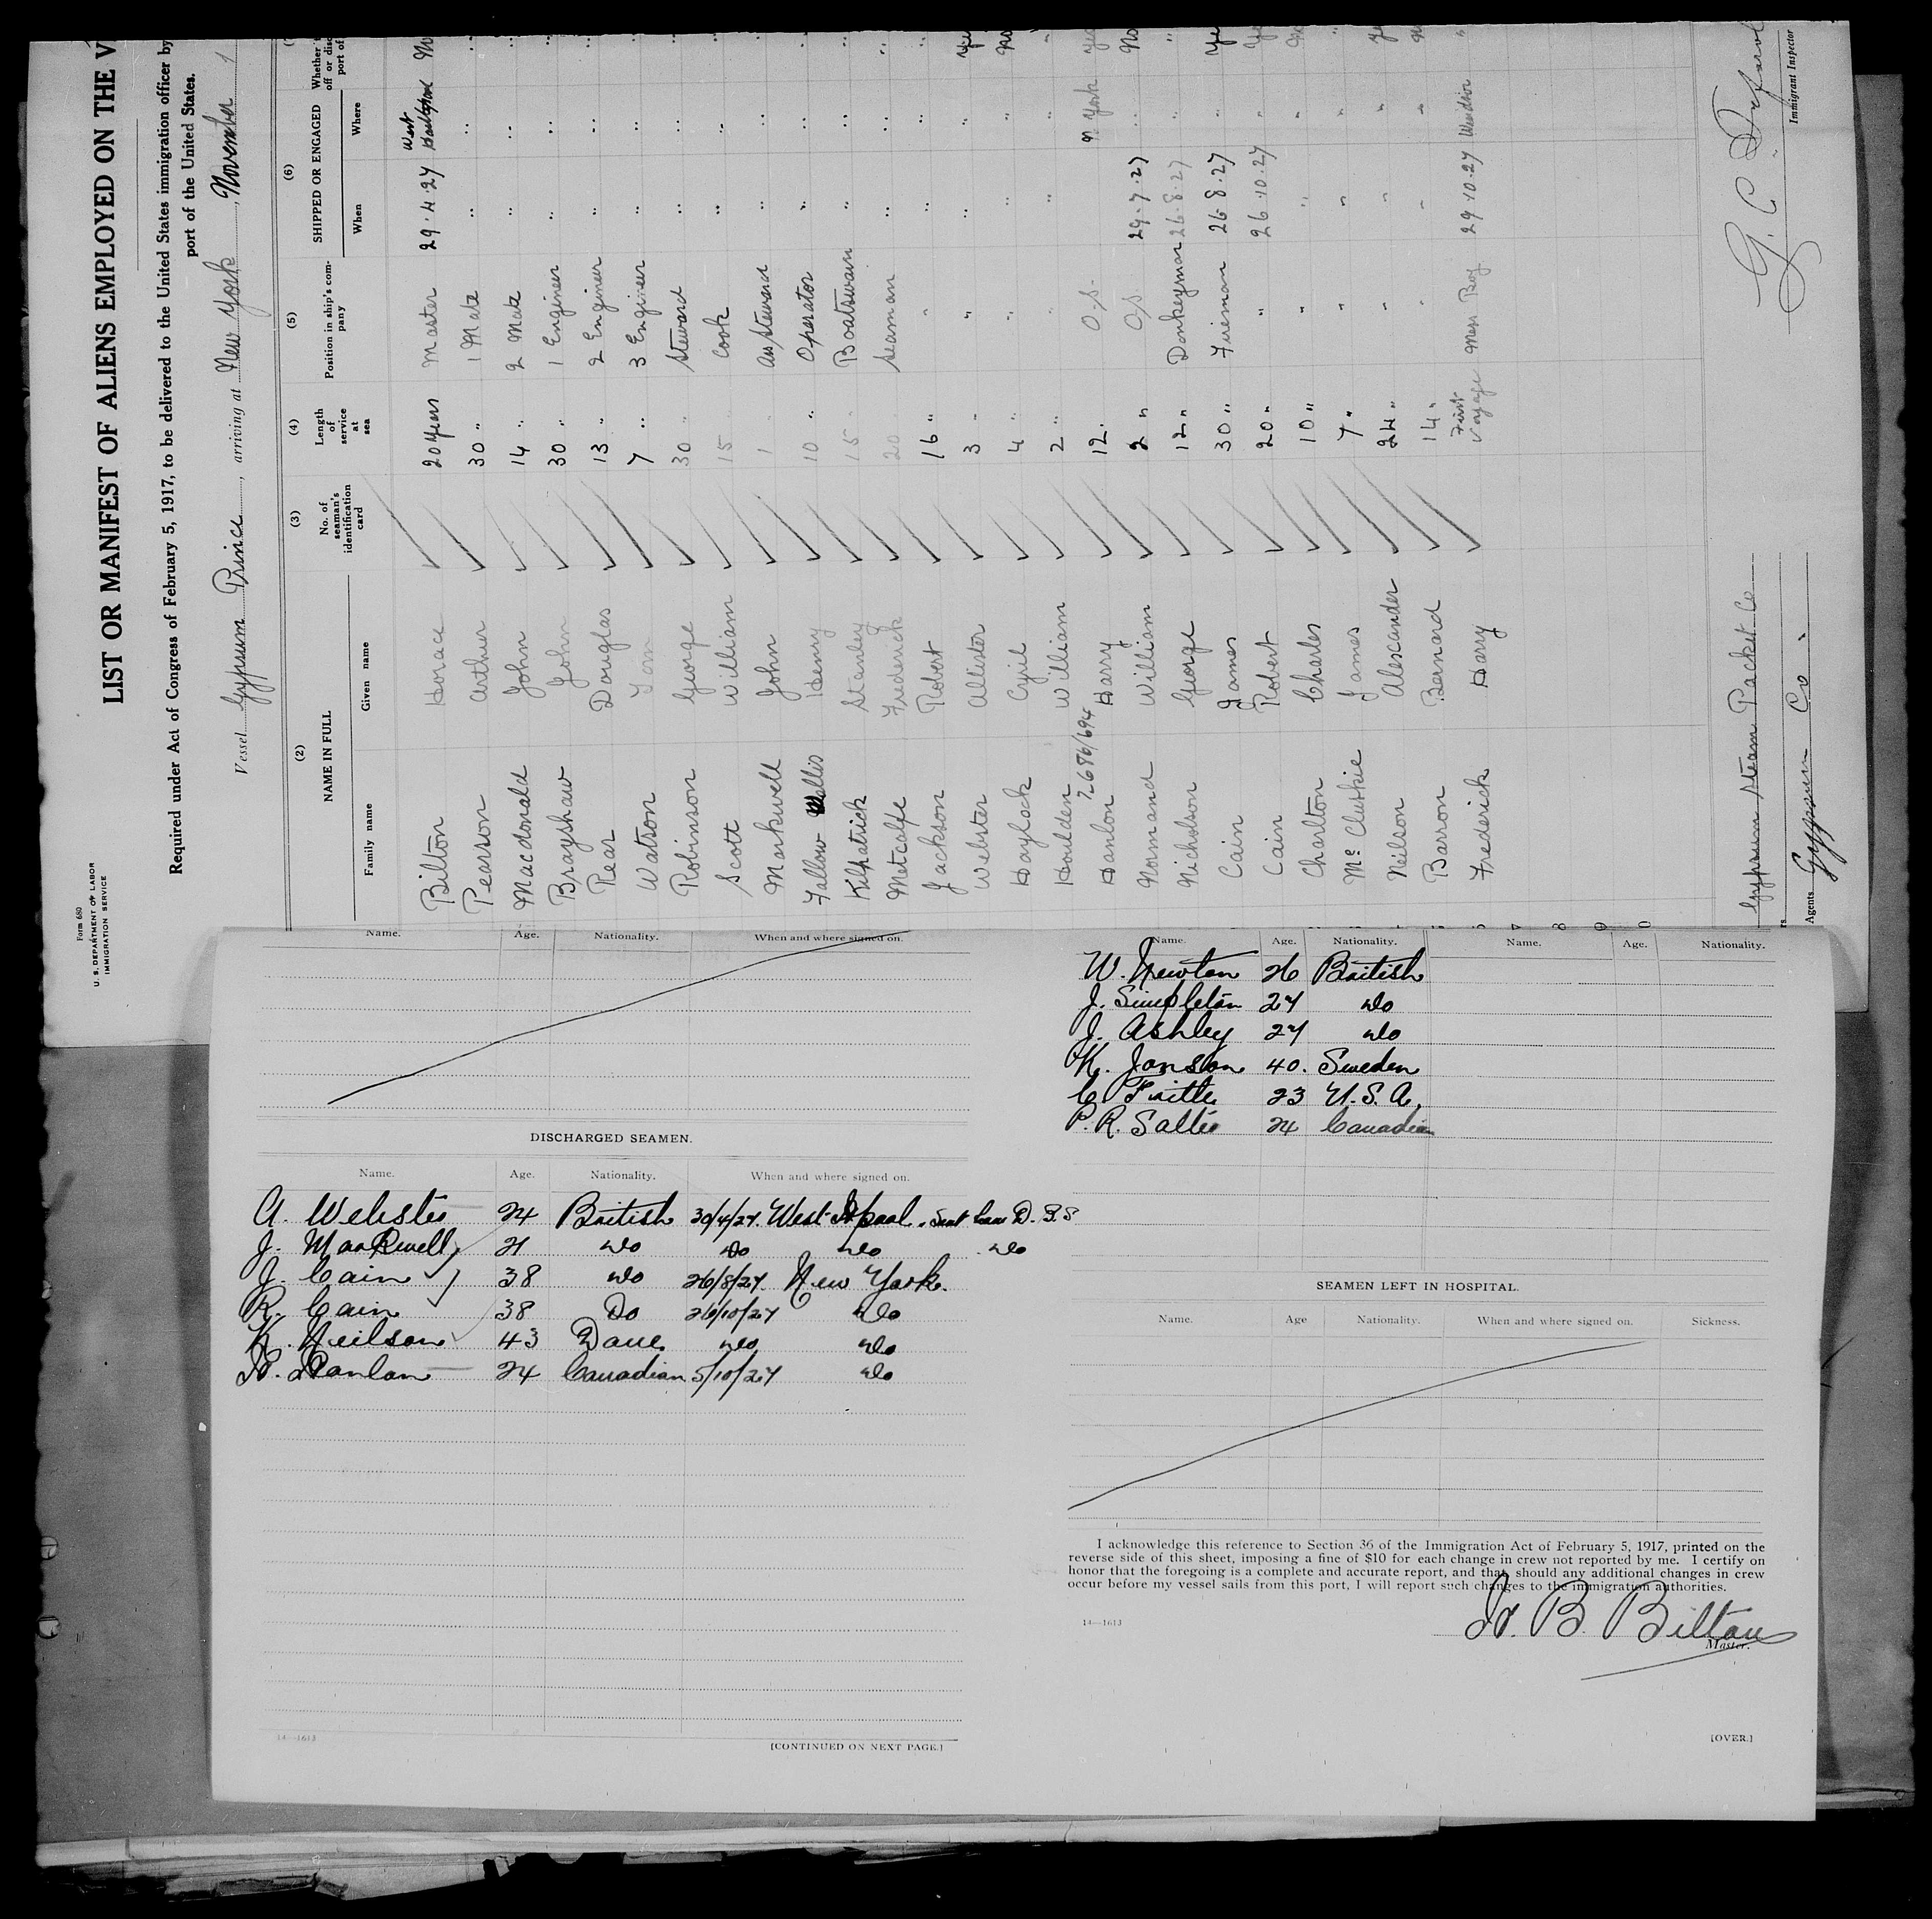 Form 680
U. S. DEPARTMENT OF LABOR
IMMIGRATION SERVICE
LIST OR MANIFEST OF ALIENS EMPLOYED ON THE V
Required under Act of Congress of February 5, 1917, to be delivered to the United States immigration officer by
port of the United States.
Vessel Gypsum Prince, arriving at New York, November 1
(2) (3) (4) (5) (6)
NAME IN FULL No. of seaman's identification card Length of service at sea Position in ship's company SHIPPED OR ENGAGED Whether
Family name Given name When Where
Bilton Horace 20 years Master 29.4.27 West Hartlepool
Pearson Arthur 30 " 1 Mate " "
Macdonald John 14 " 2 Mate " "
Brayshaw John 30 " 1 Engineer " "
Rear Douglas 13 " 2 Engineer " "
Watson Tom 7 " 3 Engineer " "
Robinson George 30 " Steward " "
Scott William 15 " Cook " "
Markwell John 1 " Ass Steward " "
Fallow Wallis Henry 10 " Operator " "
Kilpatrick Stanley 15 " Boatswain " "
Metcalfe Frederick 20 Seaman " "
Jackson Robert 16 " " " "
Webster Allister 3 " " " " Yes
Haylock Cyril 4 " " " " No
Houlden William 2 " " " " "
Hanlon 2686/694 Harry 12 " O.S. N York Yes
Normand William 2 " O.S. 29.7.27 " No
Nicholson George 12 " Donkeyman 26.8.27 " "
Cain James 30 " Fireman 26.8.27 " Yes
Cain Robert 20 " " 26.10.27 " Yes
Charlton Charles 10 " " " " No
McCluskie James 7 " " " " "
Neilson Alexander 24 " " " " Yes
Barron Bernard 14 " " " " No
Frederick Harry First voyage Mess Boy 29.10.27 Windsor "
Gypsum Steam Packet Co
Agents Gypsum Co.
Immigrant Inspector
Name. Age. Nationality. When and where signed on.
DISCHARGED SEAMEN.
Name. Age. Nationality. When and where signed on.
A. Webster 24 British 30/4/27. West Hpool.
J. Markwell 21 do do do do
J. Cain 38 do 26/8/27. New York.
R. Cain 38 Do 26/10/27 do
K. Neilson 43 Dane. do do
H. Hanlan 24 Canadian 5/10/27 do
14—1613
[CONTINUED ON NEXT PAGE.]
Name. Age. Nationality. Name. Age. Nationality.
W. Newton 26 British
J. Simpleton 27 do
J. Ashley 27 do
K. Jonson 40. Sweden
23 U.S.A.
P. R. Salter 24 Canadian
SEAMEN LEFT IN HOSPITAL.
Name. Age Nationality. When and where signed on. Sickness.
I acknowledge this reference to Section 36 of the Immigration Act of February 5, 1917, printed on the
reverse side of this sheet, imposing a fine of $10 for each change in crew not reported by me. I certify on
honor that the foregoing is a complete and accurate report, and that should any additional changes in crew
occur before my vessel sails from this port, I will report such changes to the immigration authorities.
14—1613
H. B. Bilton
Master.
[OVER.]